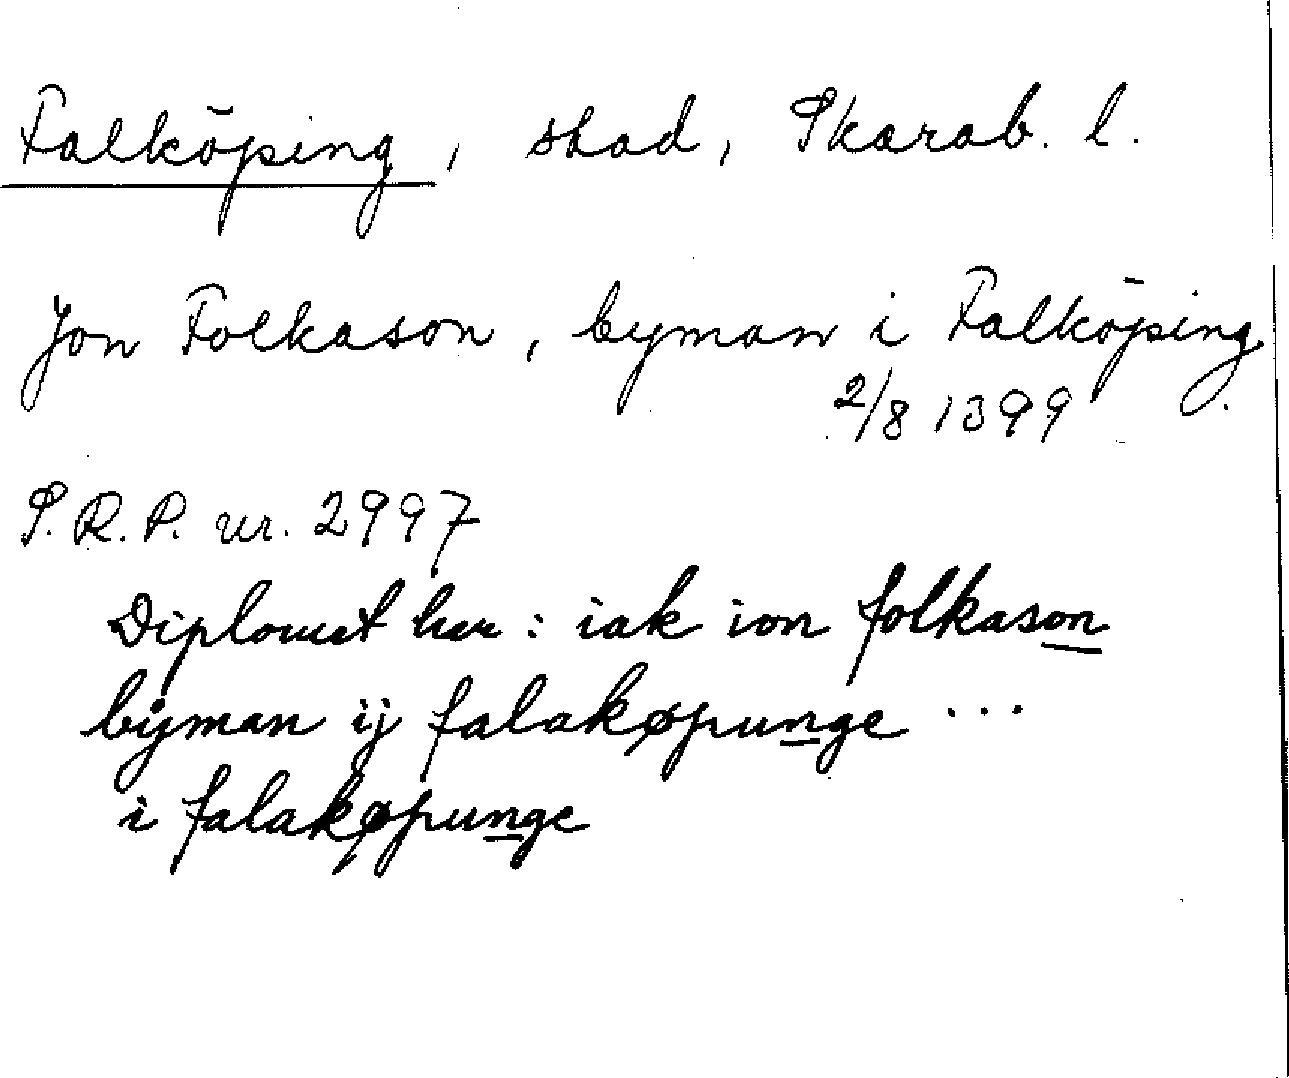 Falköping, stad, Skarab. l.
Jon Folkason, byman i Falköping
2/8 1399.
S.R.P. nr. 2997
Diplomet har: iak ion folkason
bÿman ij falakøpunge ...
i falakøpunge